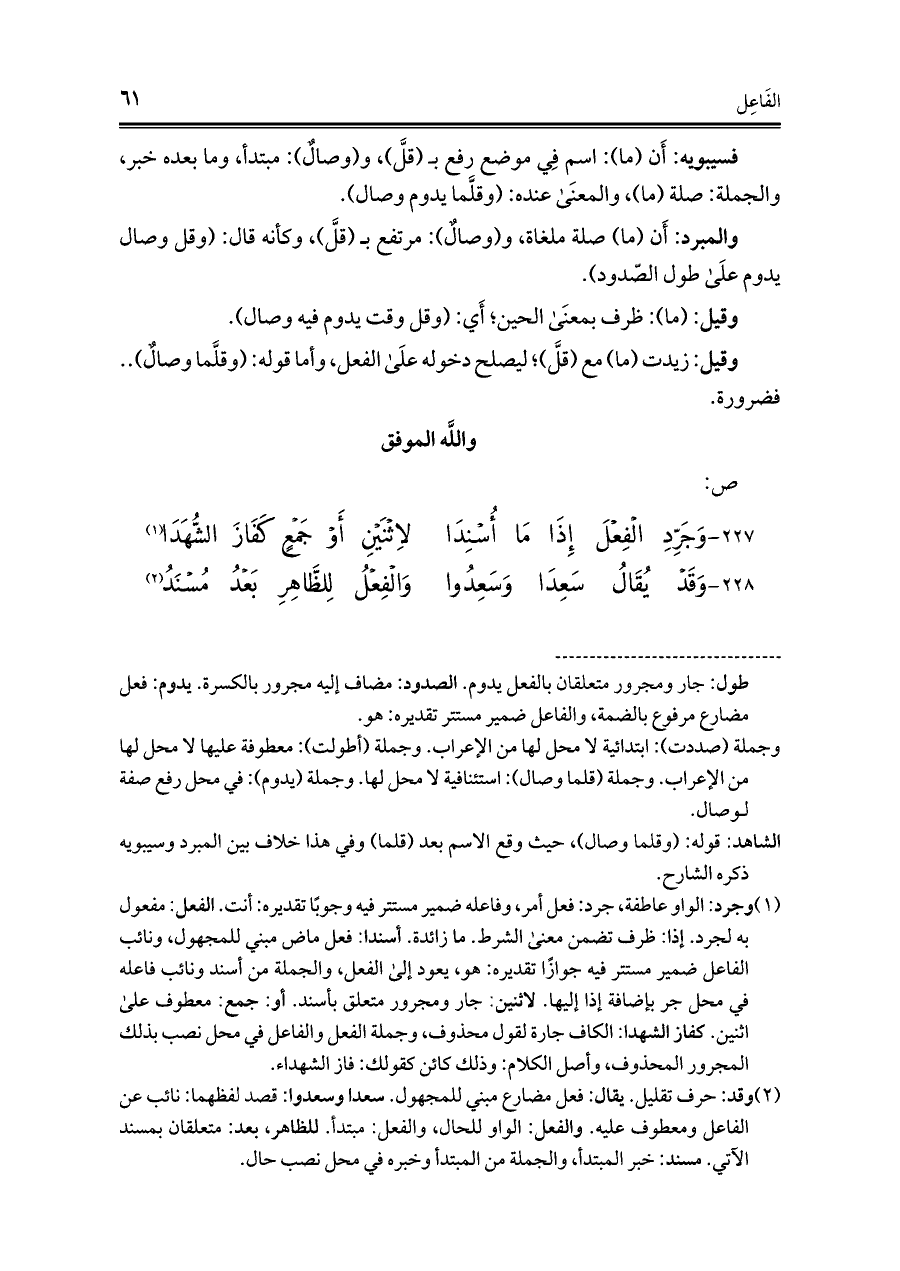 الفَاعِل ٦١
فسيبويه: أَن (ما): اسم فِي موضع رفع بـ (قلَّ)، و(وصالٌ): مبتدأ، وما بعده خبر،
والجملة: صلة (ما)، والمعنَىٰ عنده: (وقلَّما يدوم وصال).
والمبرد: أَن (ما) صلة ملغاة، و(وصالٌ): مرتفع بـ (قلَّ)، وكأنه قال: (وقل وصال
يدوم علَىٰ طول الصّدود).
وقيل: (ما): ظرف بمعنَىٰ الحين؛ أَي: (وقل وقت يدوم فيه وصال).
وقيل: زيدت (ما) مع (قلَّ)؛ ليصلح دخوله علَىٰ الفعل، وأما قوله: (وقلَّما وصالٌ)..
فضرورة.
واللَّه الموفق
ص:
٢٢٧-وَجَرِّدِ الْفِعْلَ إِذَا مَا أُسْنِدَا لِاثْنَيْنِ أَوْ جَمْعٍ كَفَازَ الشُّهَدَا(١)
٢٢٨-وَقَدْ يُقَالُ سَعِدَا وَسَعِدُوا وَالْفِعْلُ لِلظَّاهِرِ بَعْدُ مُسْنَدُ(٢)
طول: جار ومجرور متعلقان بالفعل يدوم. الصدود: مضاف إليه مجرور بالكسرة. يدوم: فعل
مضارع مرفوع بالضمة، والفاعل ضمير مستتر تقديره: هو.
وجملة (صددت): ابتدائية لا محل لها من الإعراب. وجملة (أطولت): معطوفة عليها لا محل لها
من الإعراب. وجملة (قلما وصال): استئنافية لا محل لها. وجملة (يدوم): في محل رفع صفة
لـوصال.
الشاهد: قوله: (وقلما وصال)، حيث وقع الاسم بعد (قلما) وفي هذا خلاف بين المبرد وسيبويه
ذكره الشارح.
(١)وجرد: الواو عاطفة، جرد: فعل أمر، وفاعله ضمير مستتر فيه وجوبًا تقديره: أنت. الفعل: مفعول
به لجرد. إذا: ظرف تضمن معنىٰ الشرط. ما زائدة. أسندا: فعل ماض مبني للمجهول، ونائب
الفاعل ضمير مستتر فيه جوازًا تقديره: هو، يعود إلىٰ الفعل، والجملة من أسند ونائب فاعله
في محل جر بإضافة إذا إليها. لاثنين: جار ومجرور متعلق بأسند. أو: جمع: معطوف علىٰ
اثنين. كفاز الشهدا: الكاف جارة لقول محذوف، وجملة الفعل والفاعل في محل نصب بذلك
المجرور المحذوف، وأصل الكلام: وذلك كائن كقولك: فاز الشهداء.
(٢)وقد: حرف تقليل. يقال: فعل مضارع مبني للمجهول. سعدا وسعدوا: قصد لفظهما: نائب عن
الفاعل ومعطوف عليه. والفعل: الواو للحال، والفعل: مبتدأ. للظاهر، بعد: متعلقان بمسند
الآتي. مسند: خبر المبتدأ، والجملة من المبتدأ وخبره في محل نصب حال.